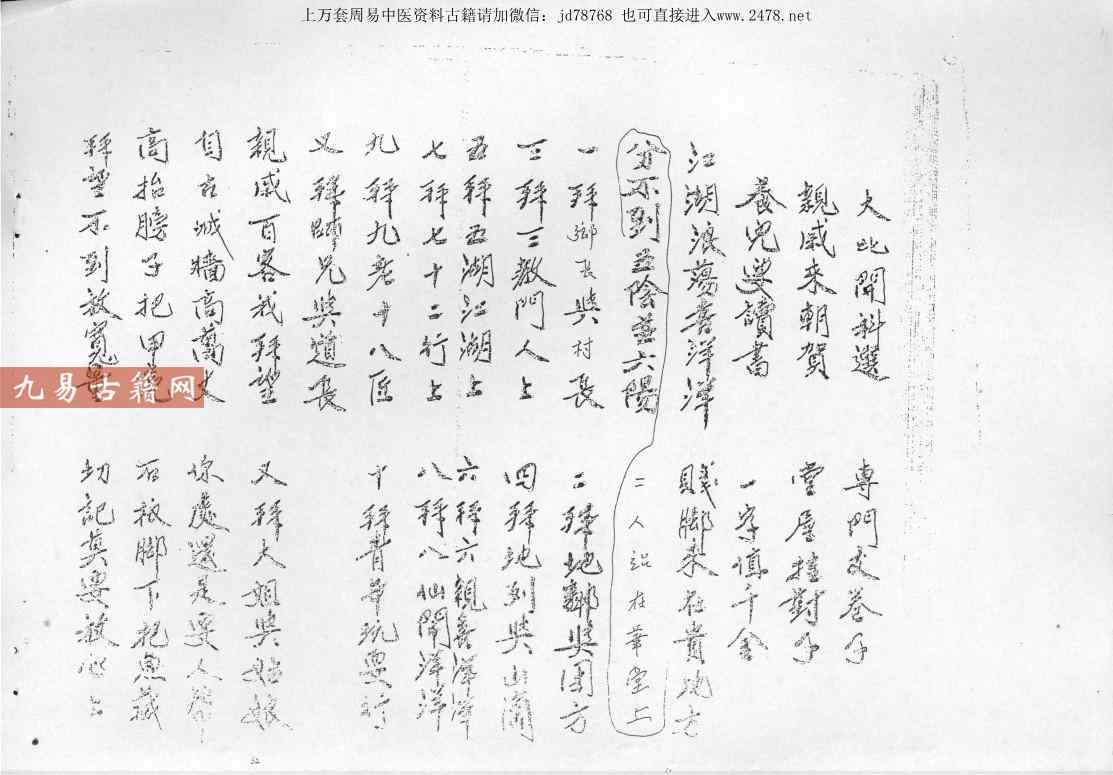 上万套周易中医资料古籍请加微信：jd78768 也可直接进入www.2478.net
大比開科選 專門文卷子
親戚來朝賀 堂屋掛對子
養兒要讀書 一字值千金
江湖浪蕩喜洋洋 賤脚來在貴地方
分不到五陰並六陽 二人站在華堂上
一拜鄉長與村長 二拜地鄰與團方
三拜三教門人上 四拜地列與山
五拜五湖江湖上 六拜六親喜洋洋
七拜七十二行上 八拜八仙鬧洋洋
九拜九老十八匠 十拜青年玩耍
又拜師兄與道長
親戚百客我拜望 又拜大姐與姑娘
自古城牆高萬丈 你處還是要人幫
高抬膀子把甲 石板脚下把魚藏
拜望不到放寬 切記莫要放心上
九易古籍网
52